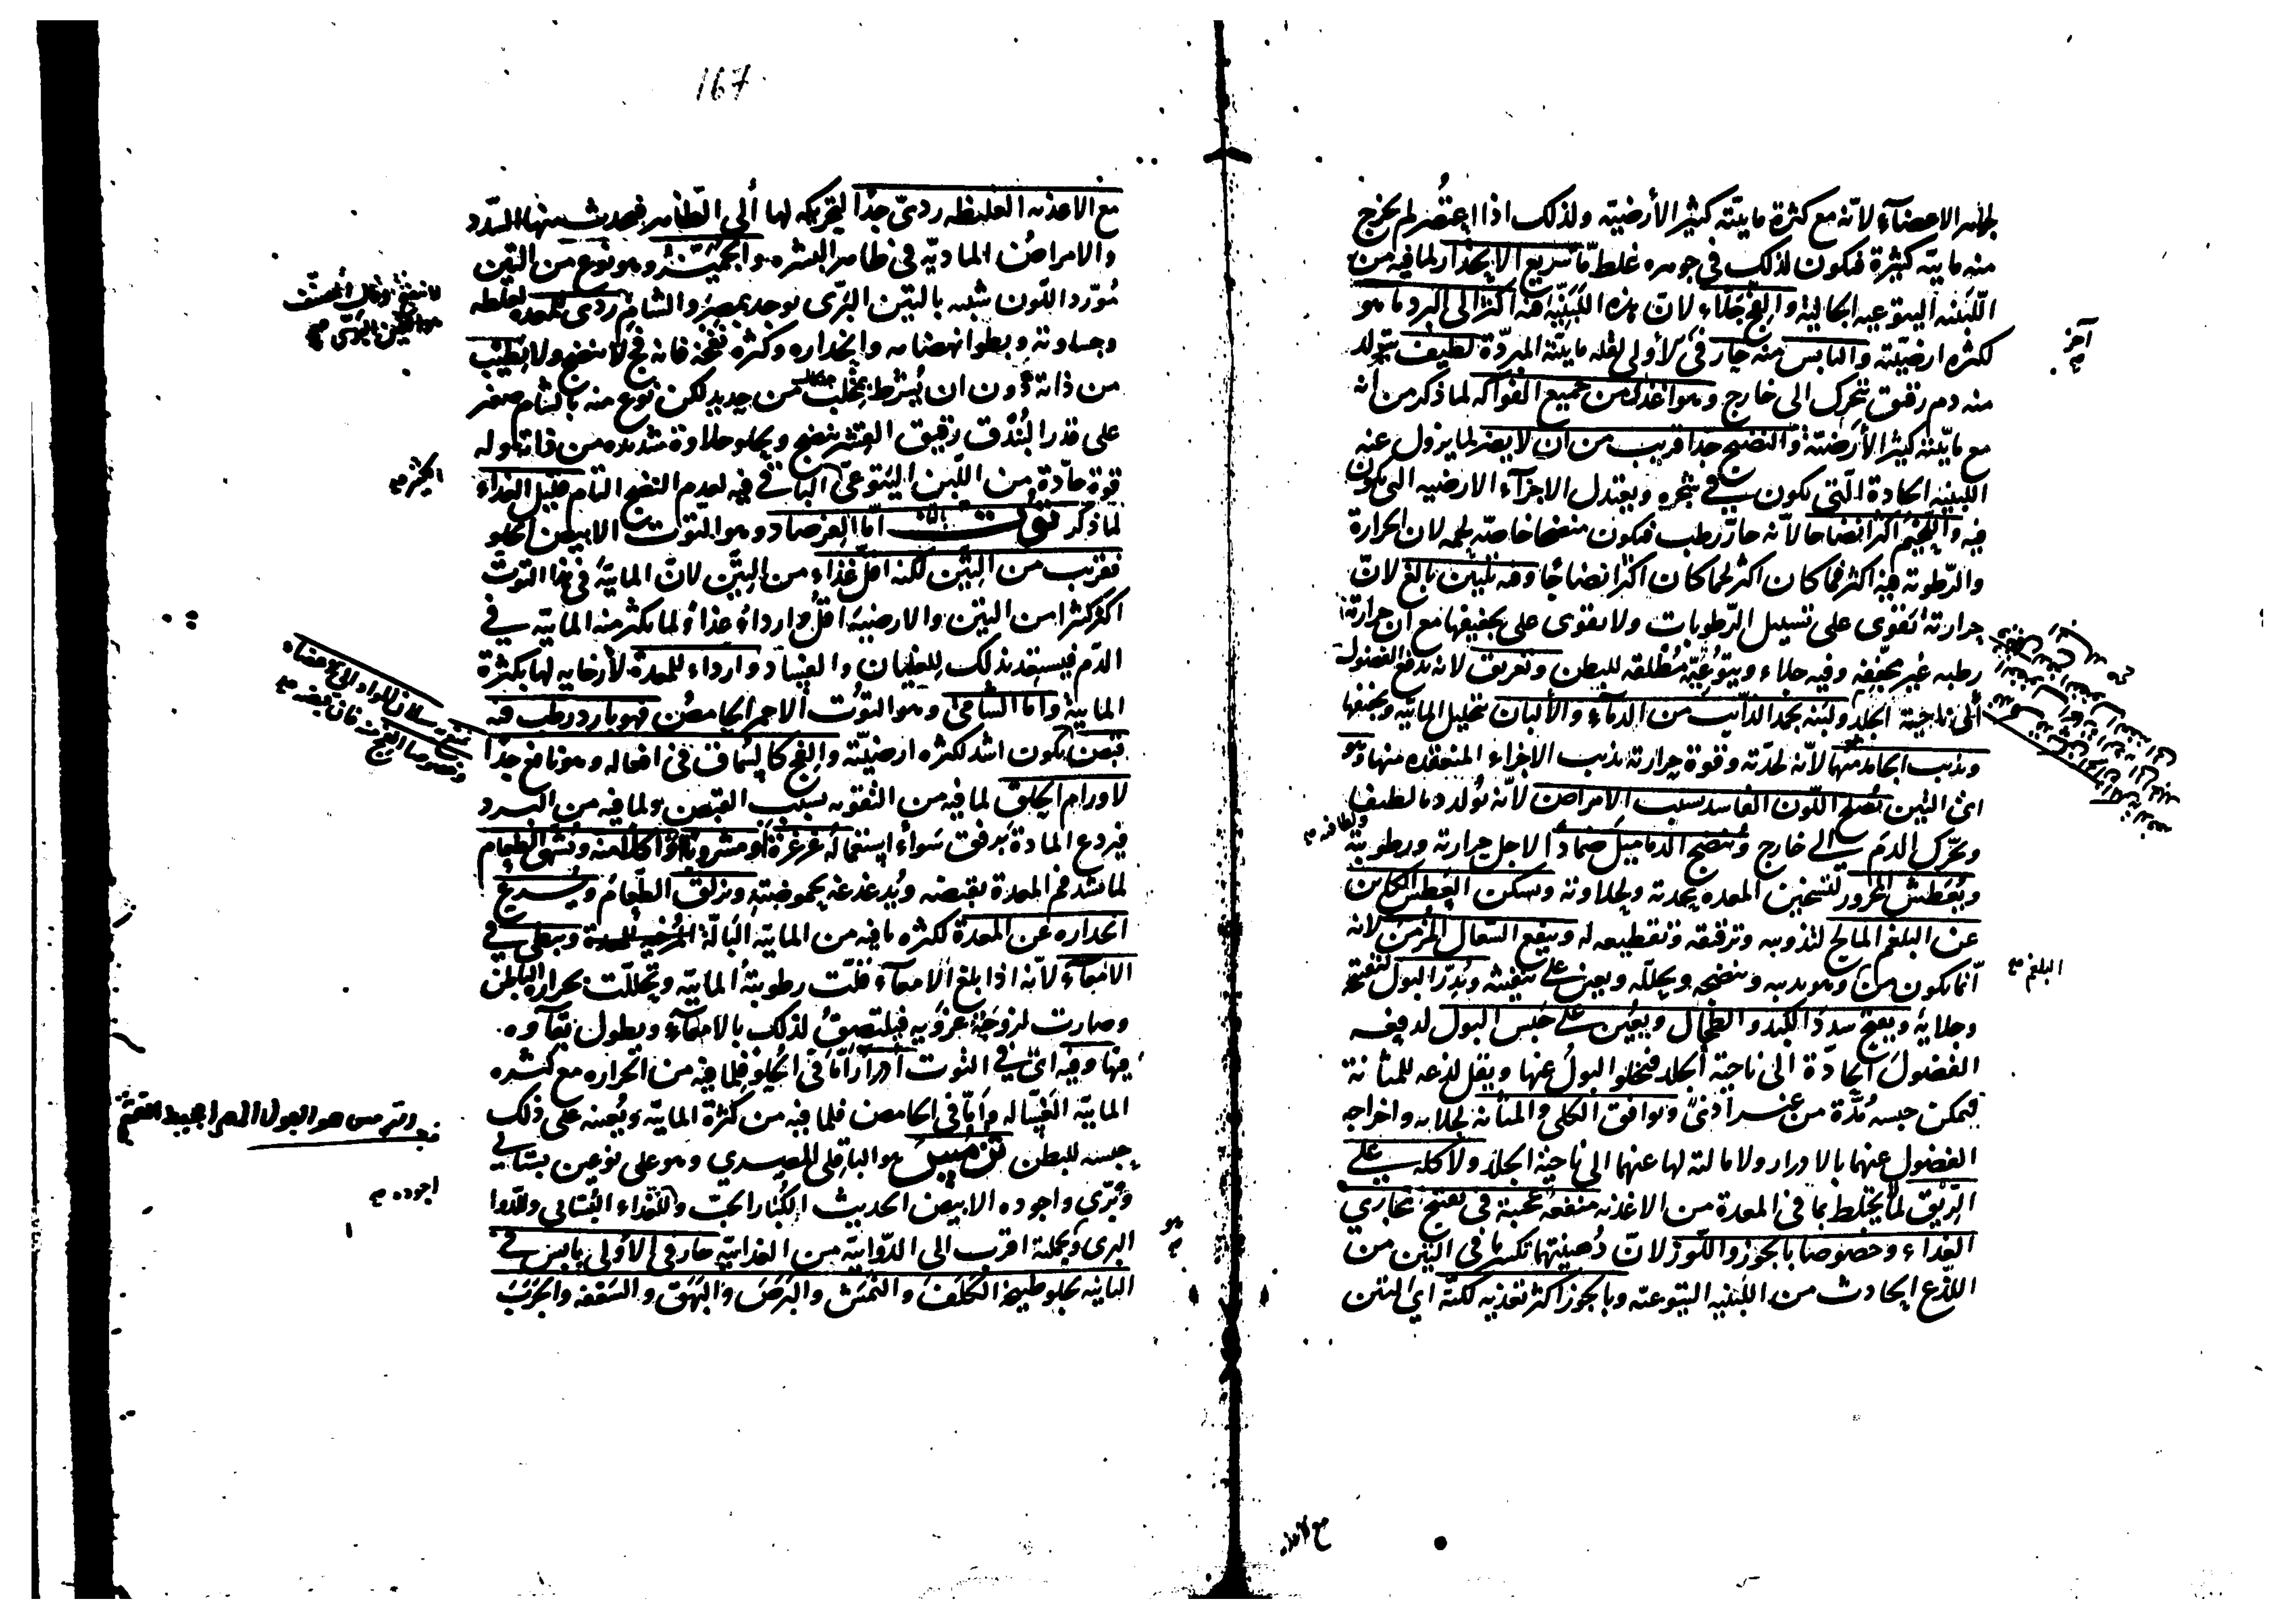 لجوهر الاعضآء لانّه مع كثرة ماييّته كثير الأرضيّة ولذلك اذا اعتُصر لم يخرج
منه مايية كثيرة فيكون لذلك في جوهره غلظ مّا سريع الانحدار لما فيه من
اللّبنيّة اليتوعيه الجالية والفج جلّاء لانّ هذه اللّبنيّة فيه اكثر الى البرد ما هو
لكثرة ارضيّته واليابس منه حار في الأولى لقلة ماييّته المبرّدة لطيف يتولد
منه دم رقيق تحرك الى خارج وهو اغذى من جميع الفواكه لما ذكر من أنه
مع ماييّته كثير الأرضيّة والنضيج جدا قريب من ان لا يضر لما يزول عنه
اللبنيه الحادة الّتي تكون في شجره ويعتدل الاجزآء الارضيه التي تكون
فيه واللّحيم اكثر انضاجا لانّه حارّ رطب فيكون منضجا خاصّه لحمه لان الحرارة
والرّطوبة فيه اكثر فما كان اكثر لحما كان اكثر انضاجًا وفيه تليين بالغ لانّ
حرارته تقوى على تسييل الرّطوبات ولا تقوى على تجفيفها مع ان حرارته
رطبه غير مجفّفه وفيه جلاء ويتوعيّة مُطلقه للبطن وتعريق لانه يدفع الفضول
الى ناحية الجلد ولبنه يجمد الذائب من الدمآء والألبان بتحليل المائيّه وتجفيفها
ويذيب الجامد منهما لانّه لحدّته وقوة حرارته يذيب الاجزاء المنعقده منها وهو
اى التين يُصلح اللّون الفاسد بسبب الامراض لانّه يُولد دما لطيفا
ويحرّك الدم الى خارج ويُنضج الدماميل ضمادًا لاجل حرارته ورطوبته
ولطافته صح
ويُعطش المحرور لتسخين المعده بحدته وبحلاوته ويسكن العطش الكاين
عن البلغم المالح لتذويبه وترقيقه وتقطيعه له وينفع السّعال المُزمن لانه
انّما يكون من وهو يذيبه وينضجه ويحلّله ويعين على تنفيثه ويُدِرّ البول لتفتيحه
البلغم صح
وجلايه ويفتح سدد الكبد والطحال ويعين على حبس البول لدفعه
الفضول الحادّة الى ناحية الجلد فيخلو البول عنها ويقل لذعه للمثانة
فيمكن حبسه مُدّة من غير أذىً ويوافق الكلى والمثانه لجلايه واخراجه
الفضول عنهما بالادرار ولامالته لها عنهما الى ناحية الجلد ولاكله على
الرّيق لما يختلط بما في المعدة من الاغذيه منفعه عجيبة في تفتيح مجاري
الغذاء وخصوصا بالجوز واللّوز لانّ دُهنيتهما تكسر ما في التين من
اللّذع الحادث من اللّبنيه اليتوعيّه وبالجوز اكثر تغذيه لكنّه اي التين
آخر صح
مع الاغذيه
167
مع الاغذيه الغليظه رديّ جدًّا لتحريكه لها ألى الظاهر فيحدث منها السّدد
والامراض الماديّه في ظاهر البشره والجمّيز وهو نوع من التين
مُورّد اللّون شبيه بالتين البرّى يوجد بمصر والشام ردى للمعده لغلظه
وجساوته وبطوانهضامه وانحداره وكثره نفخه فانه فج لا ينضج ولا يطيب
من ذاته دُون ان يُشرط بمخلب من حديد لكن نوع منه بالشام صغير
على قدر البُندق رقيق القشر ينضج ويحلو حلاوة شديده من ذاته وله
قوة حادّة من اللّبن اليَتوعيّ الباقي فيه لعدم النضج التام قليل الغذاء
لما ذكر توت امّا الفرصاد وهو التوت الابيض الحلو
فقريب من التين لكنه اقل غذاء من التين لانّ المائيّة في هذا التوت
اكثر كثيرا من التين والارضيّة اقلّ واردأ غذاءً لما يكثر منه المائيّه في
الدم فيستعد بذلك للغليان والفساد وارداء للمعدة لأرخايه لها بكثرة
المايية وامّا الشّامىّ وهو التوُت الاحمر الحامض فهو بارد رطب فيه
قبض يكون اشد لكثره ارضيّته والفج كالسّماق في افعاله وهو نافع جدًّا
لاورام الحلق لما فيه من التقويه بسبب القبض ولما فيه من البرد
فيردع المادة برفق سَواء استعماله غرغرةً او مشروبًا واكلا منه ويُشهّى الطّعام
لما يشد فم المعدة بقبضه ويُدغدغه بحموضته ويزلق الطّعام ويُسرع
انحداره عن المعدة لكثره ما فيه من المائيّه البالّة المُرخيه للمعدة ويبطى في
الامعآء لانّه اذا بلغ الامعآء قلّت رطوبتُه المائيّه وتحلّلت بحراره الباطن
وصارت لزوجَة غرويه فيلتصقُ لذلك بالامعآء ويطول بقآوه
فيها وفيه اىّ في التوت أدرارٌ أمّا في الحُلو فلما فيه من الحراره مع كثره
المايّه الغسّاله وامّا في الحامض فلما فيه من كثرة المايّه ويُعينه على ذلك
حبسه للبطن تُرمُسٌ هو الباقلى المصري وهو على نوعين بستاني
وبرّى واجوده الابيض الحديث الكُبار الحبّ وللغذاء البُستاني وللدّوا
البري وبجملته اقرب الى الدّوائيّه من الغذائيّه حار في الأولى يابس في
الثانيه يجلو طبيخه الكلَفَ والنّمَش والبرَصَ والبَهَق والسّعفه والجرَبَ
التين البرّى صح
اجوده صح
هو صح